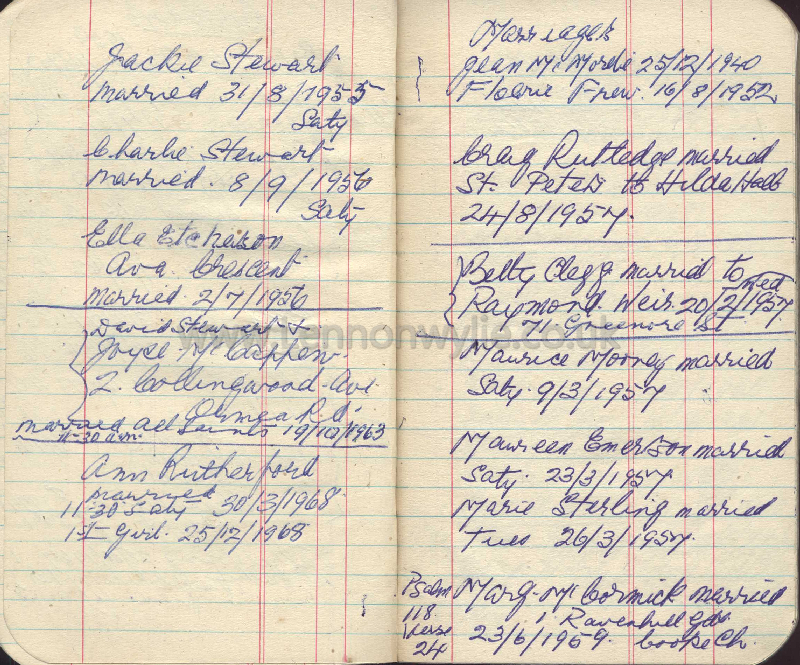 Jackie Stewart
married 31/8/1955
Saty
Charlie Stewart
married. 8/9/1956
Saty
Ella Etcheson
Ava Crescent
married 2/7/1956
David Stewart &
Joyce McCappen
2. Collingwood Ave
Ormeau Rd.
married All Saints 19/10/1963
11-30 a.m.
Ann Rutherford
married
11-30 Saty 30/3/1968
1st Girl. 25/12/1968
Marriages
Jean McMordie 25/12/1940
Florrie Frew. 16/8/1952
Craig Rutledge married
St. Peters to Hilda Hall
24/8/1957.
Betty Clegg married to
Raymond Weir. 20/2/1957 Wed
71 Greenore St
Maurice Mooney married
Saty. 9/3/1957
Maureen Emerson married
Saty. 23/3/1957
Marie Sterling married
Tues 26/3/1957.
Psalm 118 Verse 24
Marg. McCormick married
1 Ravenhill Gds
23/6/1959. Cooke Ch.
www.lennonwylie.co.uk